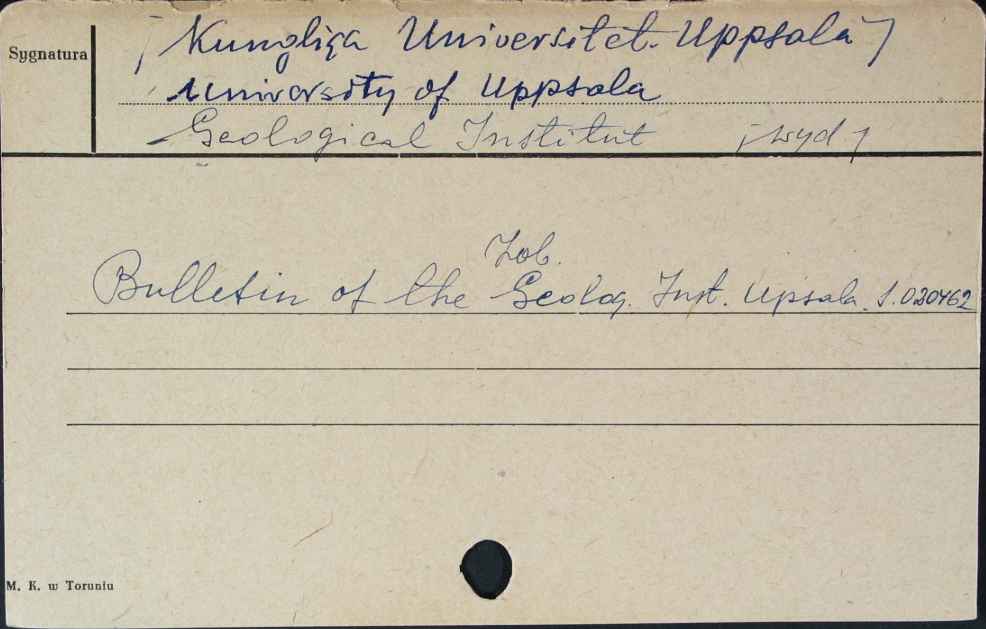 Sygnatura
[Kungliga Universitet. Uppsala]
University of Uppsala
Geological Institut [wyd]
Zob.
Bulletin of the Geolog. Inst. Upsala. S.020462
M. K. w Toruniu